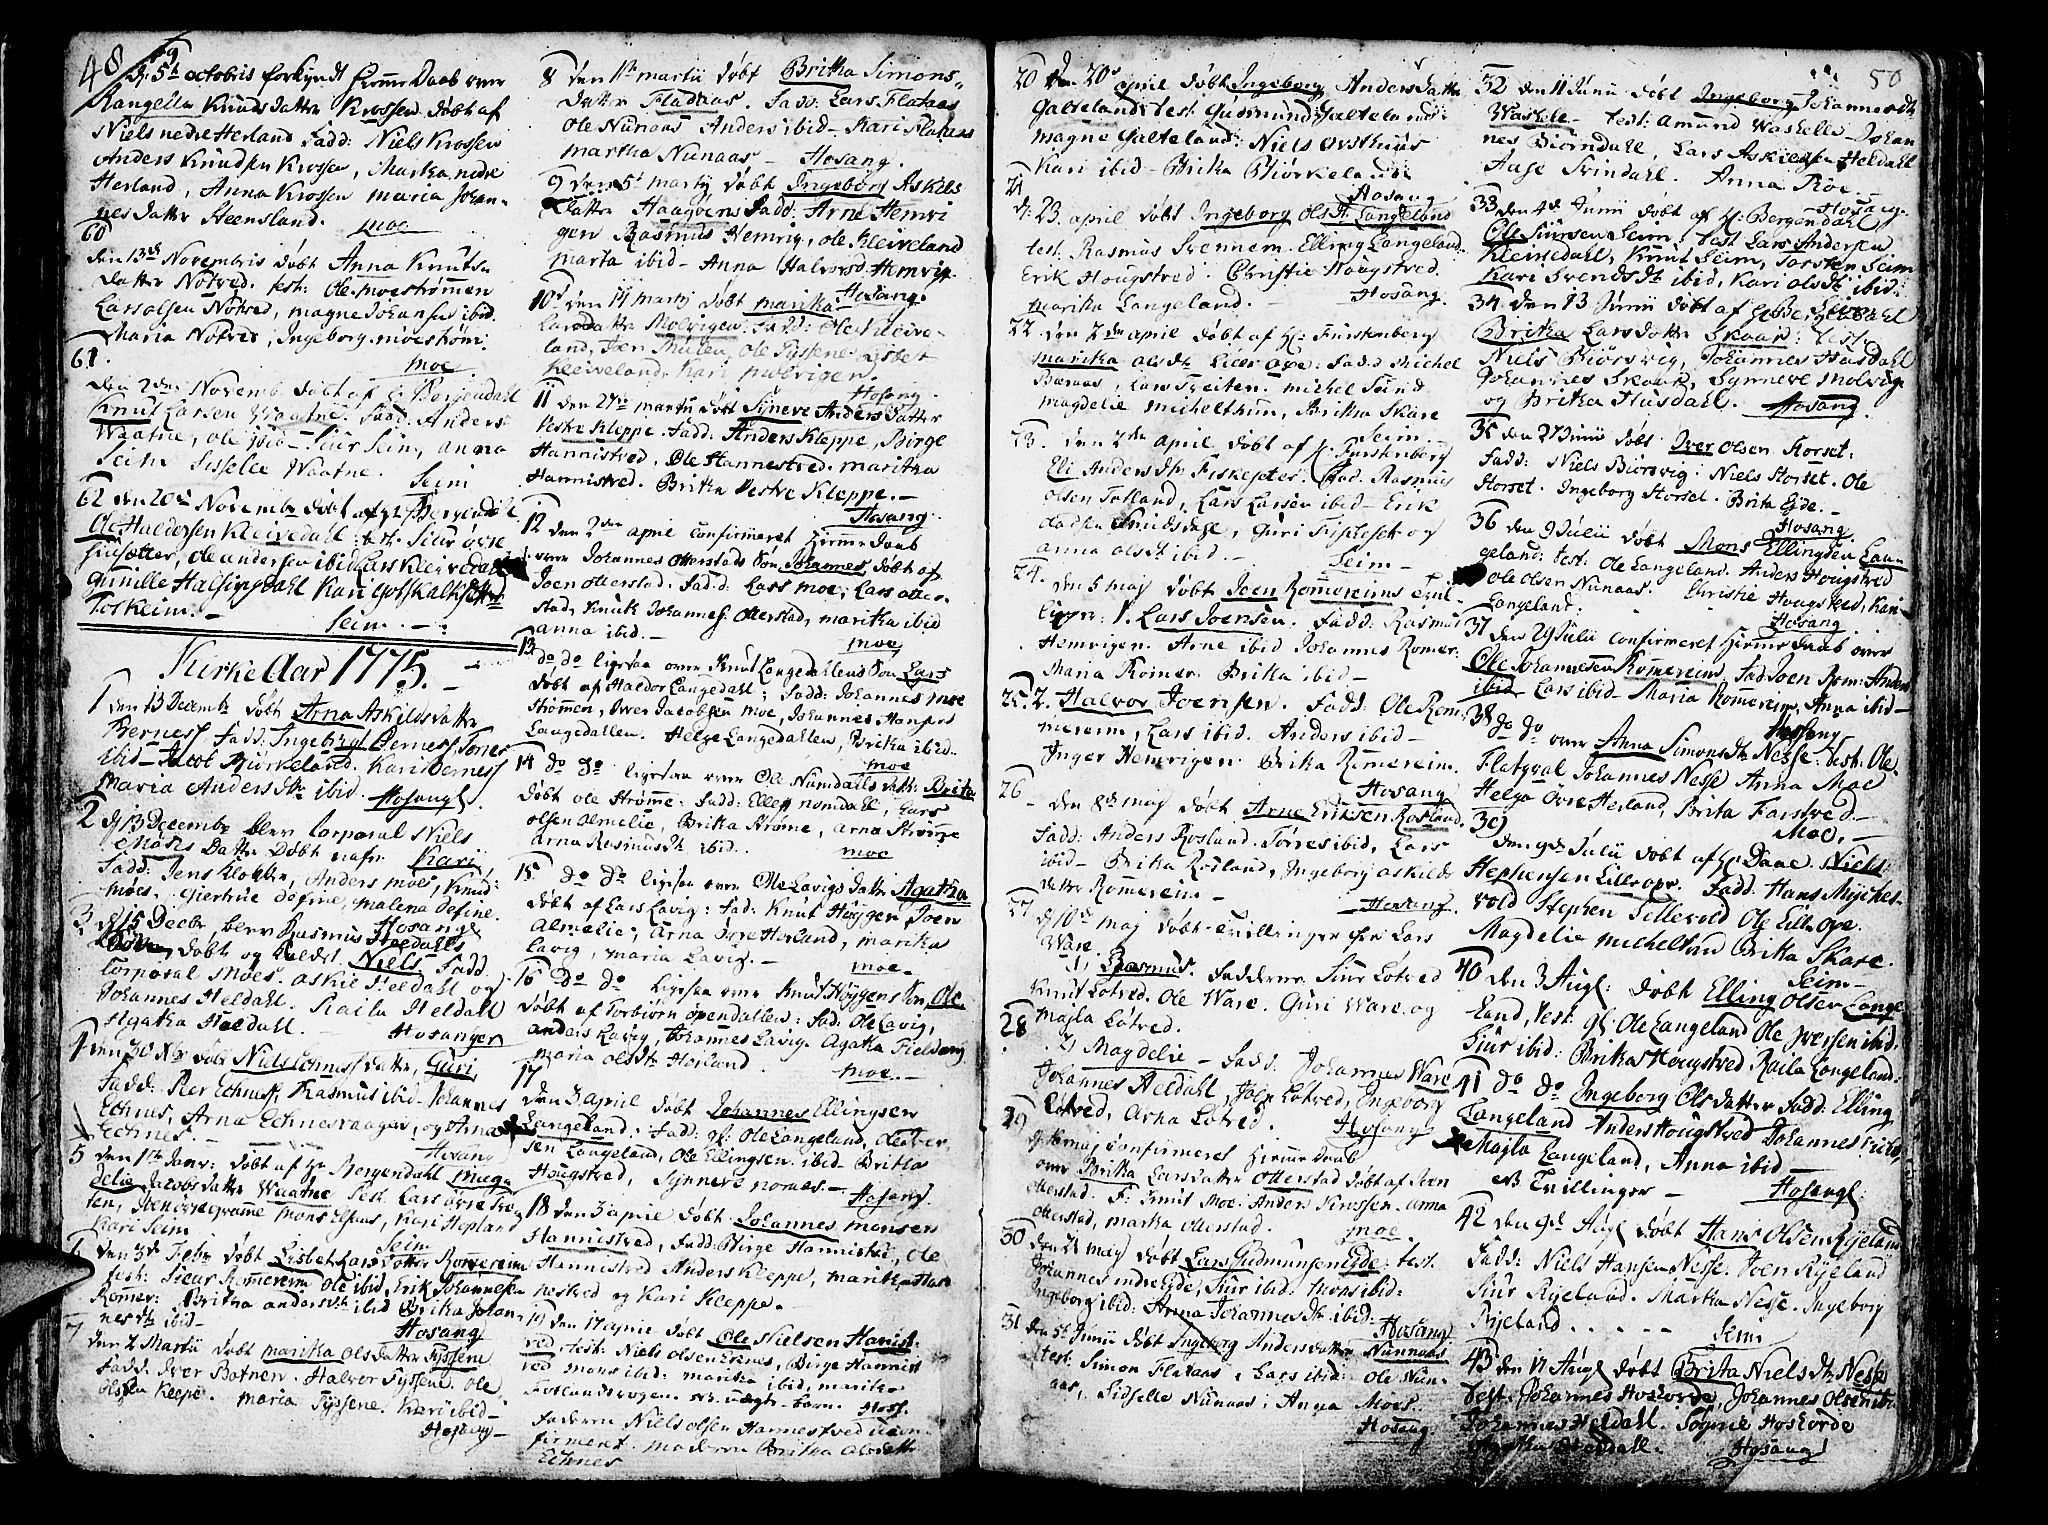 48
59
d. 5t octobris forkyndt Hiemme Daab over
Rangella Knuds datter Krossen døbt af
Niels nedre Herland Fadd: Niels Krossen
Anders Knudsen Krossen, Martha nedre
Herland, Anna Krossen maria Johan-
nes datter Steensland. moe
60
den 13de Novembris døbt Anna Knuts-
datter Nøtved. test: Ole moestrømmen
Lars olsen Nøtved, magne Johansen ibid.
Maria Nøtved, Ingeborg moestrøm.
moe
61.
den 2den Novemb. døbt af Hr Bergendahl
Knut Larsen Waatne. Fadd. Anders
Waatne, ole ibid. Siur Seim, anna
Seim Sisselee Waatne. Seim
62 den 20de Novembr døbt af Hr Bergendahl
Ole Haldorsen Kleivedahl: test. Siur øvre
ole andersen ibid Lars Kleivedahl
Gunille Halsingdahl Kari Gotskalksdatter
Toskeim. Seim
Kirke Aar 1775.
1 den 13 Decembr døbt Arna Askildsdatter
Berness Fadd: Ingeborg Berness, Torres
ibid. Jacob Biørkeland. Kari Berness
Maria Andersdtr ibid. Hosangr.
2 d. 13 Decembr blev Corporal Niels
Moes Datter Døbt nafn Kari
Fadd: Jens Klokker, Anders moes, Knud
moes. Giertrue define, malena define.
Hosangr
3 d. 15 Decbr. blev Rasmus Heldahls
døbt og kaldet Niels. Fadd.
Corporal Moes. Askil Heldahl og
Johannes Heldahl. Raila Heldahl
Agatha Heldahl. Hosanger
4 den 30 Xbr døbt Niels Echness datter, Guri,
Fadd: Peer Echness, Rasmus ibid. Johannes
Echnes, Arna Echnesvaagen, og Arna
Echnes. Hosang
5 den 1te Janv: døbt af Hr Bergendahl Magdelia
Jacobsdatter Waatne Test. Lars øvre
Mons Kari Hopland
Kari Seim Seim
6 den 3de Febr døbt Lisbet Lars Datter Romereim
test: Siur Romereim Ole ibid, Erik Johannesen
Romer: Britha andersdtr ibid Britha Johan-
nesdtr ibid- Hosang
7
den 2 Martii døbt maritha olsdatter Tyssene
Fadd. Iver Botnen. Halvor Tyssene. ole
olsen Kleppe. maria Tyssene. Kari ibid-
Hosang-
8 den 11te martii døbt Britha Simons-
datter Fladaas. Fadd: Lars Flataas
Ole Nunaas Anders ibid- Kari Flataas
martha Nunaas- Hosang.
9 den 5t marty døbt Ingeborg Askels
datter Haagøens Fadd. Arne Hemri
gen Rasmus Hemrig, ole Kleiveland
marta ibid- Anna Halvorsd. Hemrig.
Hosang.
10 den 14 marty døbt maritha
Larsdatter Molvigen: Fadd: Ole Kleive-
land, Joen Mulen, Ole Tyssene. Lisbet
Kleiveland. Kari molvigen.
Hosang.
11 den 27de martii døbt Synneve Anders datter
Vestre Kleppe. Fadd: Anders Kleppe, Birge
Hannistved, Ole Hannestved. maritha
Hannistved. Britha Vestre Kleppe.-
Hosang
12 den 2den april confirmeret Hiemme daab
over Johannes otterstads Søn Johannes døbt af
Joen otterstad: Fadd: Lars moe, Lars otter-
stad, Knut Johannes. otterstad, maritha ibid
anna ibid.- moe
13
do do ligesaa over Knut Langedahlens Søn Lars
døbt af Haldor Langedahl; Fadd: Johannes moe
strømmen, Iver Jacobsen moe, Johannes
Langedallen. Helge Langedahlen, Britha ibid.
moe
14 do do ligesaa over Ole Numdalls datter Brita
døbt ole Strømme: Fadd: Ellen nomdahl, Lars
olsen almelie, Britha strøme, arna Strømme
Arna Rasmusdtr ibid.. moe
15 do do ligesaa over Ole Lavigs datter Agatha
døbt af Lars Lavig: Fad: Knut Høygen Joen
Almelie, Arna øvre Herland, maritha
Lavig, maria Lavig.- moe-
16 do do ligesaa over Knut Høygens Søn Ole
døbt af Torbiørn opendallen: Fad: Ole Lavig,
anders Lavig, Johannes Lavig. Agatha Fieldeng
maria olsdtr Herland. moe.-
17
den 3 april døbt Johannes Ellingsen
Langeland. Fadd: gl. Ole Langeland, Ole Iver-
sen Langeland, Ole Ellingsen ibid- Britha
Hougstved, Synneve nonaas.- Hosang.
18 den 3 april døbt Johannes monsen
Hannistved, Fadd: Birge Hannistve, ole
Hannistved Anders Kleppe, maritha Han-
nestved og Kari Kleppe.
19 den 17 april døbt Ole Nielsen Hannist-
ved, test: Niels Olsen Echnes, Birge Hannist
ved mons ibid: maritha ibid, maritha
Totlandsvogen. NB. uægte barn. Hos.
Faderen Niels olsen Hannestved ucon-
firmeret. moderen Britha olsdatter
Echnes
50
20 den 20de april døbt Ingeborg Andersdatter
Galteland: test. Gudmund Galteland:
magne Galteland: Niels Orsthuus
Kari ibid- Britha Biørkeland:
Hosang
21
d: 23. april døbt Ingeborg olsdtr Langeland
test. Rasmus Svennem. Elling Langeland.
Erik Hougstved. Christie Hougstved.
maritha Langeland. Hosang.
22 den 2den april døbt af Hr: Furstenberg
maritha olsdtr Lille ope: Fadd Michel
Lars Treiten. michel Sund
magdelie micheltun, Britha Skare
Seim.
23. den 2den april døbt af Hr: Furstenberg
Eli Andersdtr Fiskesæter: Fad. Rasmus
olsen Totland, Lars Larsen ibid- Erik
Ladsen Smidsdahl, Guri Fiskeset og
anna olsdtr ibid.- Seim-
24.
den 5 maj døbt Joen Romereims tvil-
linger: 1. Lars Joensen. Fadd: Rasmus
Hemrigen. Arne ibid Johannes Romer:
Maria Romer. Britha ibid-
25. 2. Halvor Joensen. Fadd: Ole Rom-
mereim, Lars ibid. Anders ibid-
Inger Hemrigen. Britha Romereim.
Hosang
26
den 8de maj døbt Arne Eriksen Rosland.
Fadd: Anders Rosland. Torres ibid, Lars
ibid- Britha Rosland, Ingeborg askilds
datter Romereim- Hosang
27
d. 10de maj døbt Tvillinger for Lars
Ware
1, Rasmus. Fadderne Siur Løtved
Knut Løtved. Ole Ware. Guri Ware og
Majla Løtved.
28
2) Magdelie- Fadd: Johannes Ware
Johannes Heldahl, Joen Løtved, Ingeborg
Løtved, Arna Løtved. Hosang
29
d. 16 maj confirmeret Hiemme daab
over Britha Larsdatter otterstad døbt af Joen
otterstad. F: Knut Moe. Anders Knossen. anna
otterstad, martha otterstad. moe
30
den 21 maj døbt Lars Gudmunsen Eyde: test.
Johannes indre Eyde, Siur ibid. mons ibid:
Ingeborg ibid: Anna Johannesdtr ibid: Hosang
31 den 5t Junii døbt Ingeborg Andersdatter Nunnaas
test: Simon Flataas, Lars ibid: Ole Nun-
aas, Sidselle Nunaas, Anna Moes.
Hosang
32 den 11 Junii døbt Ingeborg Johannesdtr
Waskele- test: Amund Waskelle- Johan
nes Biørndahl, Lars Askildsen Heldahl
Aase Svindahl. Anna Roe.-
Hosang.
33 den 4de Junii døbt af Hr: Bergendahl
Ole Siursen Seim. Test Lars Andersen
Kleivedahl, Knut Seim, Torsten Seim
Kari Svendsdtr ibid, Kari olsdtr ibid.
Seim
34 den 13 Junii døbt af
Britha Larsdatter Skaar: test.
Niels Biørsvig, Johannes Husdahl
Johannes Skaar, Synneve Molvig
og Britha Husdahl. Hosang
35 den 27 Junii døbt. Iver Olsen Storset.
Fadd: Niels Biørsvig: Niels Storset. Ole
Storset. Ingeborg Storset. Brita Eyde.-
Hosang
36 den 9 Julii døbt Mons Ellingsen Lan-
geland: test: Ole Langeland. Anders Hougstved
ole olsen Nunaas. Christie Hougstved, Kari-
Langeland. Hosang
37 den 29 Julii confirmeret Hiemme daab over
Ole Johannesen Romereim, Fad Joen Rom: Anders
ibid Lars ibid- Maria Romereim, Anna ibid-
Hosang
38 do do over Anna Simonsdtr Nesse. test: Ole.
Flatqval Johannes Nesse Anna Moe
Helga Øvre Herland, Brita Farstved-
Moe.-
39
den 9de Julii døbt af Hr Daae Niels
Stephensen Lille ope. Fadd: Hans Myches-
vold Stephen Tellevold Ole Lille Ope.
Magdelie micheltun Britha Skare.
Seim-
40 den 3 Augl: døbt Elling Olsen Lange
land, Test: gl. Ole Langeland Ole Iversen ibid.
Siur ibid: Britha Hougstved Raila Langeland:
41 do do Ingeborg Olsdatter Fadd: Elling
Langeland Anders Hougstved Johannes
Majla Langeland, Anna ibid-
NB Tvillinger- Hosangr
42 den 9de Augl døbt Hans Olsen Ryeland
Fadd: Niels Hansen Nesse. Joen Ryeland
Siur Ryeland. Martha Nesse. Ingeborg
Ryeland..... Seim
43 den 17 Augl døbt Brita Nielsdtr Nesse
Test: Johannes Hoshovde, Johannes Olsen ib:
Johannes Heldahl. Sygnie Hoshovde
Agatha Heldahl. Hosangr